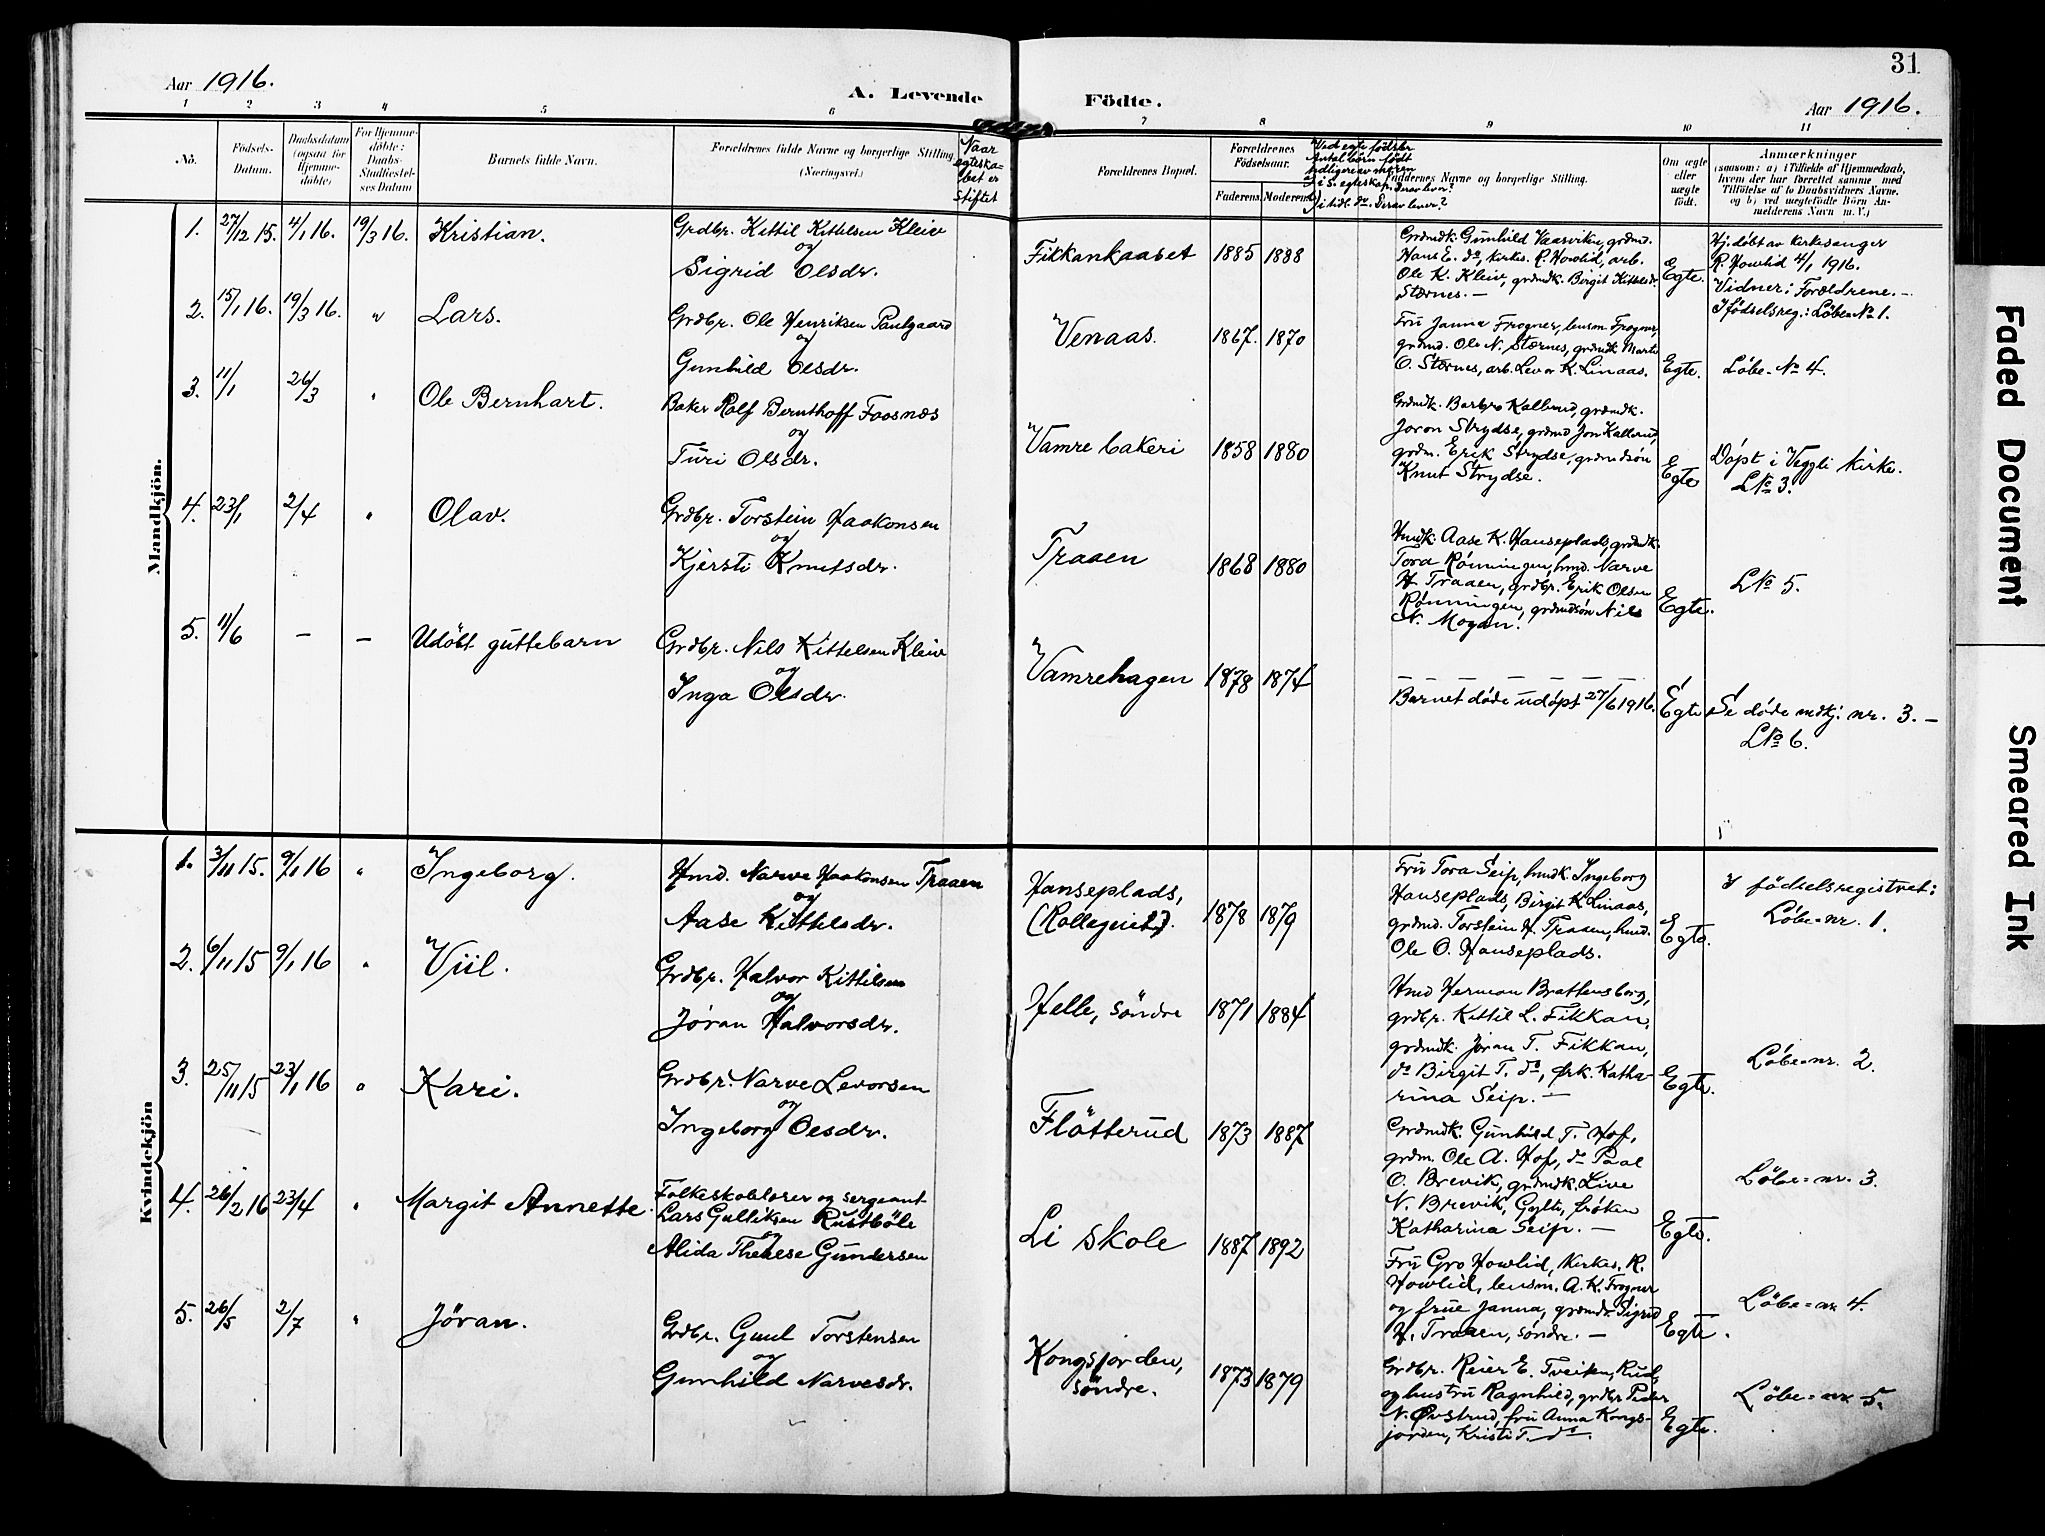 31
Aar 1916.
A. Levende
Födte.
Aar 1916.
1 2 3 4 5 6 7 8 9 10 11
No.
Födsels-
Datum.
Daabsdatum
(ogsaa for
Hjemme-
döbte)
For Hjemme-
döbte:
Daabs-
Stadfæstel-
ses Datum
Barnets fulde Navn.
Forældrenes fulde Navne og borgerlige Stilling
(Næringsvei.)
Naar
egteska-
bet er
stiftet
Forældrenes Bopæl.
Forældrenes
Födselsaar.
Faderens Moderens
Ved egte fødsler
Antal børn født
tidligere av moren
a) i S. egteskap. Derav lever?
b) i tidl. do. Derav lever?
Faddernes Navne og borgerlige Stilling.
Om ægte
eller
uægte
födt.
Anmærkninger
(saasom: a) i Tilfælde af Hjemmedaab,
hvem der har forrettet samme med
Tilföielse af to Daabsvidners Navne,
og b) ved uægtefödte Börn An-
melderens Navn m. V.)
Mandkjön.
1. 27/12 15. 4/1 16. 19/3 16. Kristian.
Grdbr. Kittil Kittelsen Kleiv
og
Sigrid Olsdr.
Fikkankaaset 1885 1888
Grdmdk. Gunhild Vaarviken, grdmd.
Hans E. do, kirkes. R. Howlid, arb.
Ole K. Kleiv, grdmdk. Birgit Kittelsdr.
Stærnes. —
Egte.
Hj. døbt av kirkesanger
R. Howlid 4/1 1916.
Vidner: Forældrene. —
I fødselsreg.: Løbe-No 1.
2. 15/1 16. 19/3 16. " Lars.
Grdbr. Ole Henriksen Paulgaard
og
Gunhild Olsdr.
Venaas. 1867. 1870
Fru Janna Frogner, lensm. Frogner,
grdmd. Ole N. Stærnes, grdmdk Marte
O. Stærnes, arb. Levor K. Linaas.
Egte.
Løbe-No 4.
3. 11/1 26/3 " Ole Bernhart.
Baker Rolf Bernthoff Foosnæs
og
Turi Olsdr.
Vamre bakeri 1858 1880
Grdmdk. Barbro Kallerud, grdmdk.
Joron Strydse, grdmd Jon Kallerud,
grdm. Erik Strydse, grdmdsøn
Knut Strydse.
Egte
Døpt i Veggli kirke.
LNo 3.
4. 23/1 2/4 " Olav.
Grdbr. Torstein Haakonsen
og
Kjersti Knutsdr.
Traaen 1868 1880
Hmdk. Aase K. Hanseplads, grdmdk.
Tora Rønningen, hmd. Narve
H. Traaen, grdbr. Erik Olsen
Rønningen, grdmdsøn Nils
N. Mogan.
Egte.
LNo 5.
5. 11/6 — — Udöbt guttebarn
Grdbr. Nils Kittelsen Kleiv
og
Inga Olsdr.
Vamrehagen 1878 1874
Barnet døde udøpt 27/6 1916.
Egte
Se døde mdkj. nr. 3. —
LNo 6.
Kvindekjön
1. 3/11 15. 9/1 16 " Ingeborg.
Hmd. Narve Haakonsen Traaen
og
Aase Kittelsdr.
Hanseplads,
(Kollegiet). 1878 1879
Fru Tora Seip, hmdk. Ingeborg
Hanseplads, Birgit K. Linaas,
grdmd. Torstein H. Traaen, hmd.
Ole O. Hanseplads.
Egte.
I födselsregistret:
Löbe-nr. 1.
2. 6/11 15 9/1 16 " Viil.
Grdbr. Halvor Kittilsen
og
Jøran Halvorsdr.
Helle, söndre 1871 1884
Hmd Herman Brattensborg,
grdbr. Kittil L. Fikkan,
grdmdk. Jøran T. Fikkan,
do Birgit T. do, frk. Katha-
rina Seip. —
Egte.
Löbe-nr. 2.
3. 25/11 15 23/1 16 " Kari.
Grdbr. Narve Levorsen
og
Ingeborg Olsdr.
Flötterud 1873 1887
Grdmdk. Gunhild T. Hof,
grdm. Ole A. Hof, do Paal
O. Brevik, grdmdk. Live
N. Brevik, Gylte, frøken
Katharina Seip. —
Egte.
Löbe-nr. 3.
4. 26/2 16 23/4 " Margit Annette.
Folkeskolelærer og sergeant
Lars Gulliksen Rustböle
og
Alida Therese Gundersen
Li skole 1887 1892
Fru Gro Howlid, kirkes. R.
Howlid, lensm. A. K. Frogner
og frue Janna, grdmdk. Sigrid
H. Traaen, søndre. —
Egte.
Löbe-nr 4.
5. 26/5 2/7 " Jöran.
Grdbr. Guul Torstensen
og
Gunhild Narvesdr.
Kongsjorden,
söndre. 1873 1879
Grdbr. Reier E. Tveiten, Rud,
og hustru Ragnhild, grdbr Peder
N. Øvstrud, fru Anna Kongs-
jorden, Kristi T. do.
Egte.
Löbe-nr 5.
Faded Document
Smeared Ink